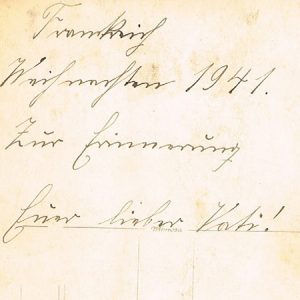 Frankreich
Weihnachten 1941.
Zur Erinnerung
Euer lieber Vati!